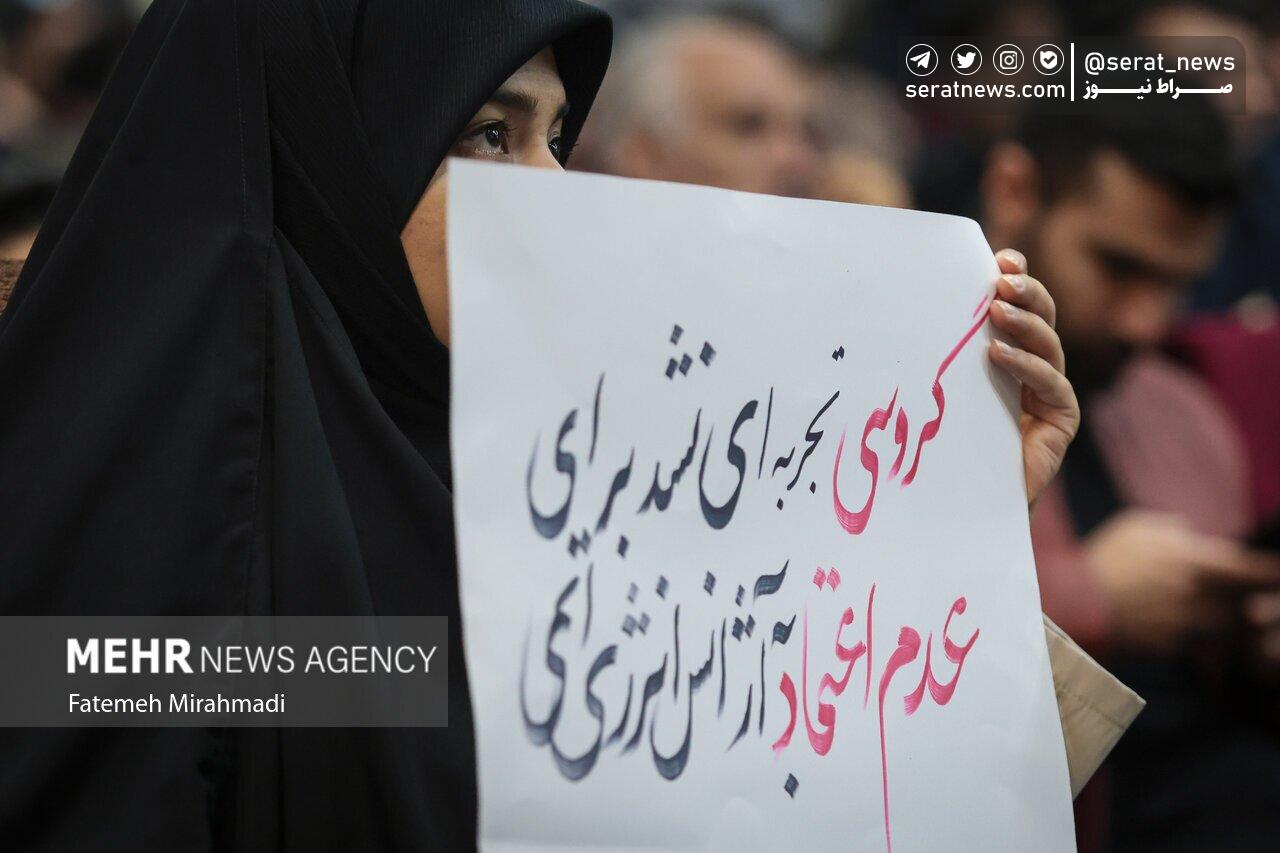 @serat_news
seratnews.com
صراط نیوز
گروسی تجربه ای شد برای
عدم اعتماد به آژانس انرژی اتمی
MEHR NEWS AGENCY
Fatemeh Mirahmadi